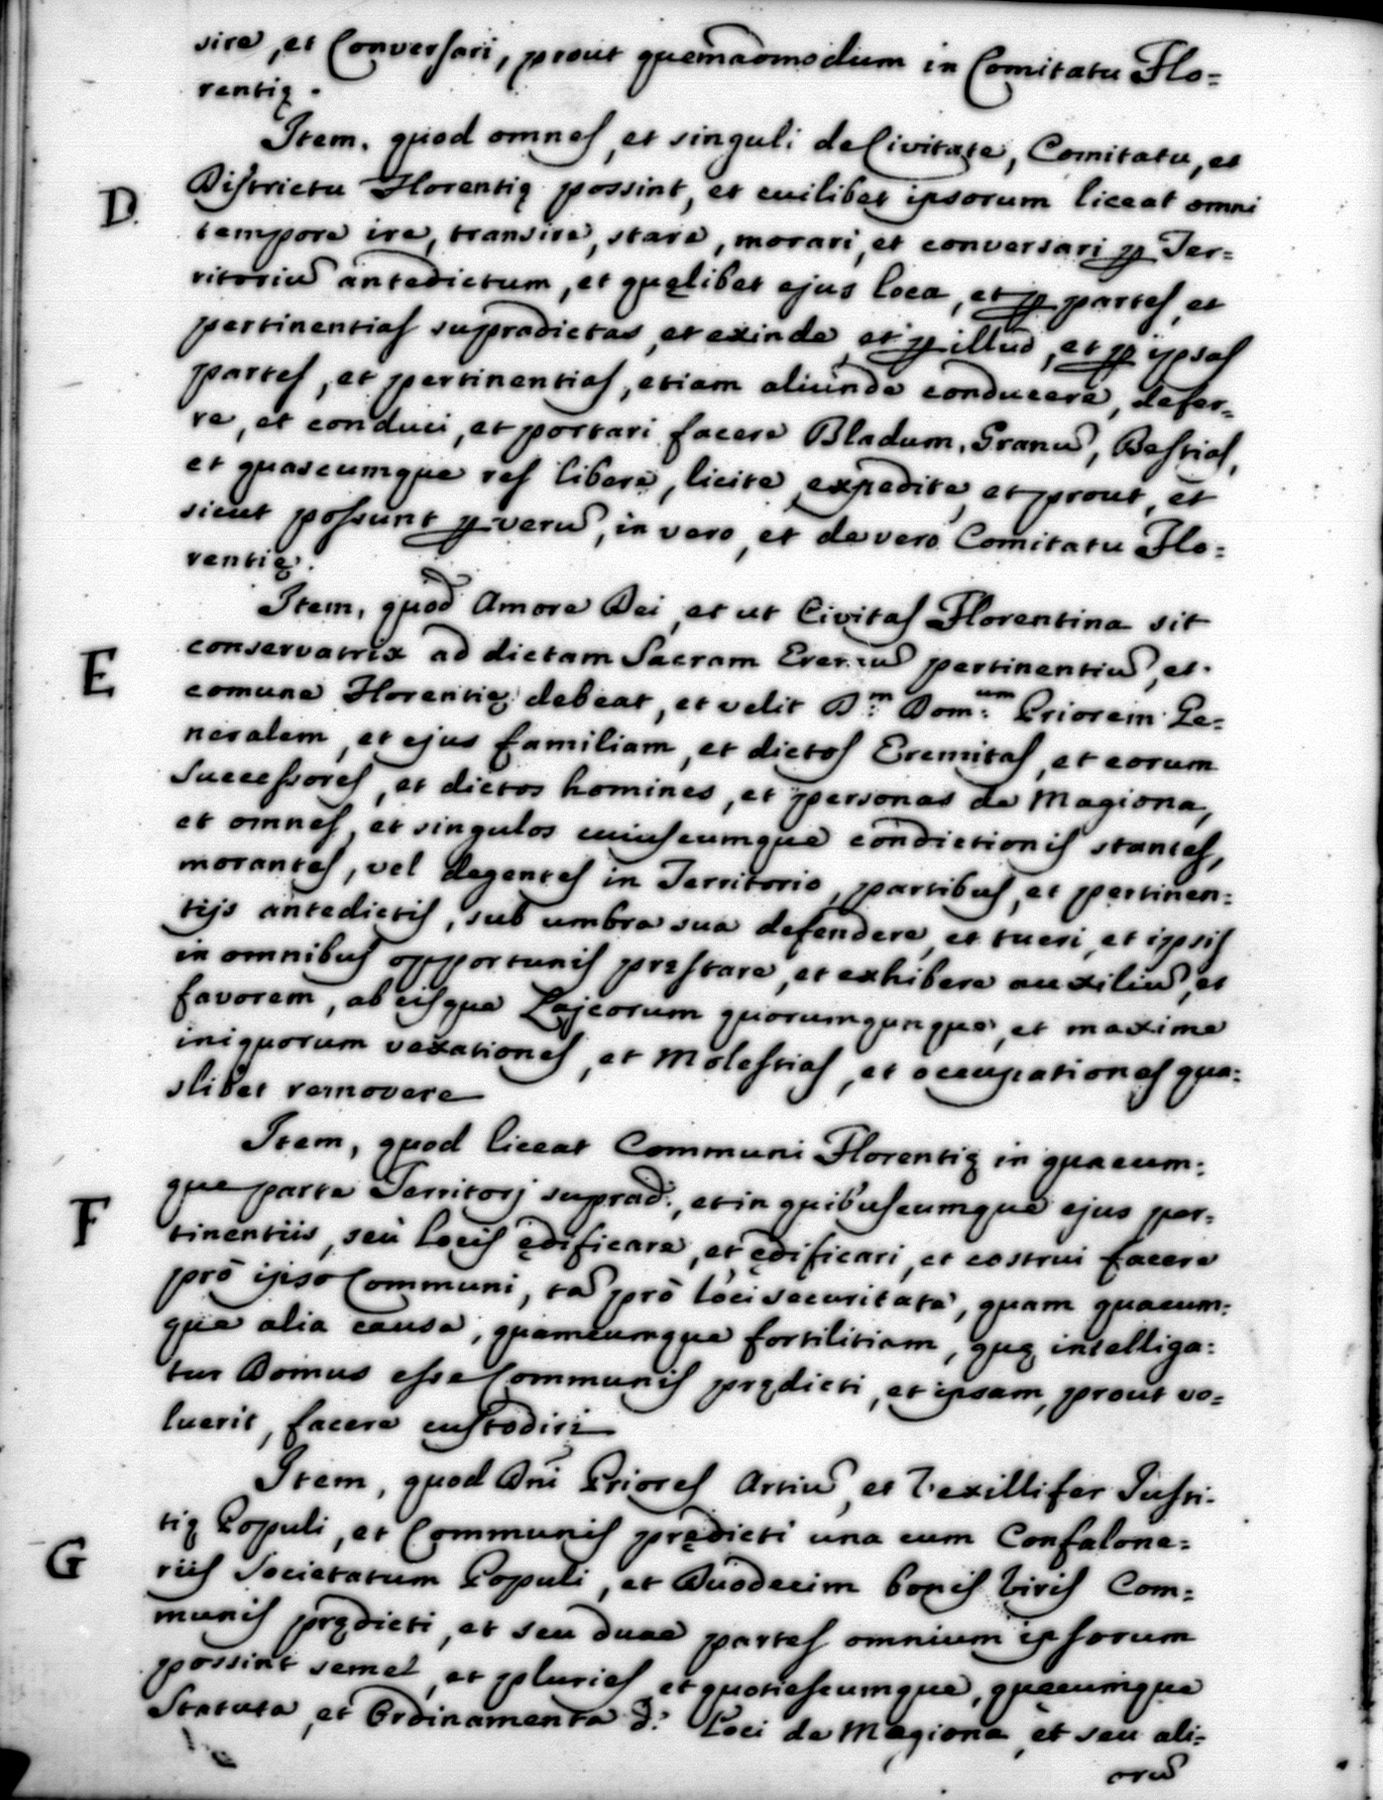 sire, et Conversari, prout quemadmodum in Comitatu Flo=
rentię.
Item, quod omnes, et singuli de Civitate, Comitatu, et
D. Districtu Florentię possint, et cuilibet ipsorum liceat omni
tempore ire, transire, stare, morari, et conversari ꝑ Ter=
ritoriũ antedictum, et quęlibet ejus loca, et ꝑ partes, et
pertinentias supradictas, et exinde, et ꝑ illud, et ꝑ ipsas
partes, et pertinentias, etiam aliunde conducere, defer=
re, et conduci, et portari facere Bladum, Granũ, Bestias,
et quascumque res libere, licite, expedite, et prout, et
sicut possunt ꝑ verũ, in vero, et de vero Comitatu Flo=
rentię.
Item, quod Amore Dei, et ut Civitas Florentina sit
E conservatrix ad dictam Sacram Eremũ pertinentiũ, et
comune Florentię debeat, et velit D.m Dom.um Priorem Ge=
neralem, et ejus familiam, et dictos Eremitas, et eorum
Successores, et dictos homines, et personas de Magiona,
et omnes, et singulos cuiuscumque condictionis stantes,
morantes, vel degentes in Territorio, partibus, et pertinen=
tijs antedictis, sub umbra sua defendere, et tueri, et ipsis
in omnibus opportunis pręstare, et exhibere auxiliũ, et
favorem, ab eisque Lajcorum quorumqunque, et maxime
iniquorum vexationes, et Molestias, et occupationes qua=
slibet removere
Item, quod liceat Communi Florentię in quacum=
F que parte Territorj suprad., et in quibuscumque ejus per=
tinentiis, seu locis ędificare, et ędificari, et costrui facere
prō ipso Communi, tã prō loci securitate, quam quacum=
que alia causa, quamcumque fortilitiam, quę intelliga=
tur Domus esse Communis prędicti, et ipsam, prout vo=
luerit, facere custodiri
Item, quod Dn̄i Priores Artiũ, et Vexillifer Justi=
tię Populi, et Communis prędicti una cum Confalone=
G riis Societatum Populi, et Duodecim bonis Viris Com=
munis prędicti, et seu duae partes omnium ipsorum
possint semel, et pluries, et quotiescumque, quęcumque
Statuta, et Ordinamenta d. Loci de Magiona, et seu ali=
orũ